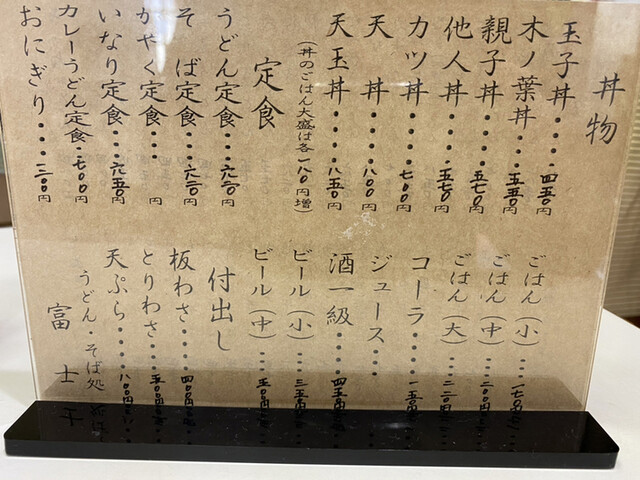 丼物
玉子丼・・・・四五〇円
木ノ葉丼・・・五五〇円
親子丼・・・・五七〇円
他人丼・・・・五七〇円
カツ丼・・・・七〇〇円
天丼・・・・八〇〇円
天玉丼・・・・八五〇円
(丼のごはん大盛は各一八〇円増)
定食
うどん定食・・・六三〇円
そば定食・・・六三〇円
かやく定食・・・円
いなり定食・・・六五〇円
カレーうどん定食・・七〇〇円
おにぎり・・・・三〇〇円
ごはん(小)・・・一七〇
ごはん(中)・・・二〇〇
ごはん(大)・・・二二〇
コーラ・・・・一五〇
ジュース・・・
酒一級・・・・四五〇
ビール(小)・・・三五〇
ビール(中)・・・五〇〇
付出し
板わさ・・・・四〇〇
とりわさ・・・五〇〇
天ぷら・・・・八〇〇
うどん・そば処
富士